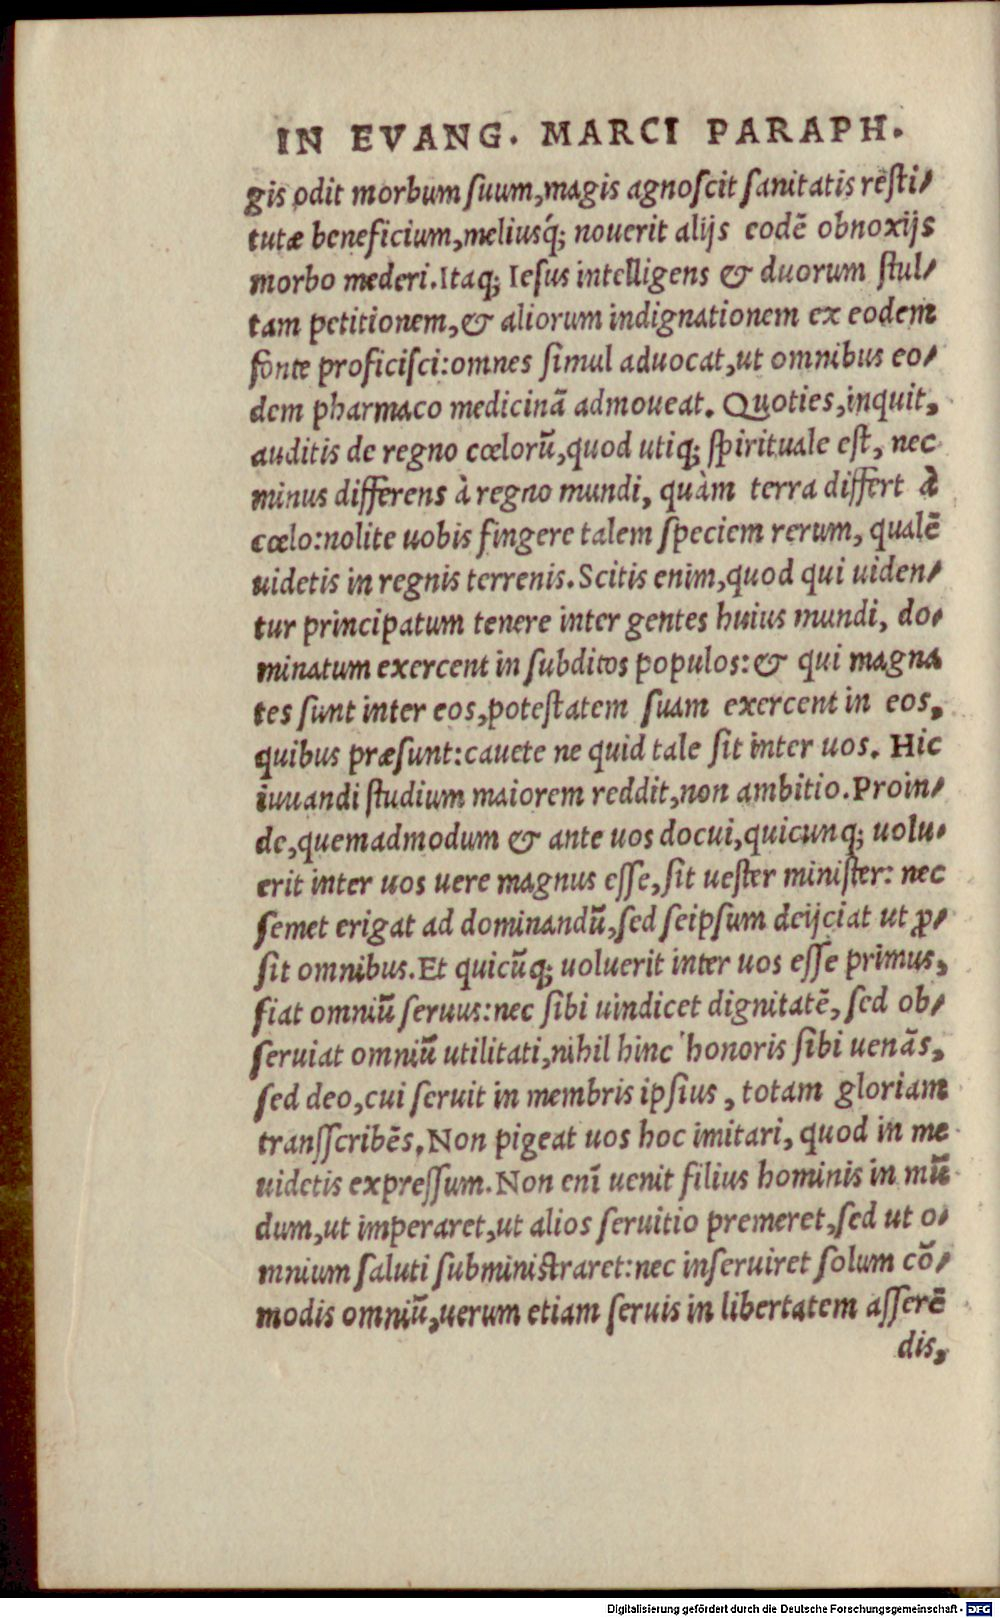 IN EVANG. MARCI PARAPH.
gis odit morbum ſuum, magis agnoſcit ſanitatis reſti-
tutæ beneficium, meliusq́; nouerit alijs eodē obnoxijs
morbo mederi. Itaq; Ieſus intelligens & duorum ſtul-
tam petitionem, & aliorum indignationem ex eodem
fonte proficiſci: omnes ſimul aduocat, ut omnibus eo-
dem pharmaco medicinā admoueat. Quoties, inquit,
auditis de regno cœlorū, quod utiq; ſpirituale eſt, nec
minus differens à regno mundi, quàm terra differt à
cœlo: nolite uobis fingere talem ſpeciem rerum, qualē
uidetis in regnis terrenis. Scitis enim, quod qui uiden-
tur principatum tenere inter gentes huius mundi, do-
minatum exercent in ſubditos populos: & qui magna
tes ſunt inter eos, poteſtatem ſuam exercent in eos,
quibus præſunt: cauete ne quid tale ſit inter uos. Hic
iuuandi ſtudium maiorem reddit, non ambitio. Proin-
de, quemadmodum & ante uos docui, quicunq; uolu-
erit inter uos uere magnus eſſe, ſit ueſter miniſter: nec
ſemet erigat ad dominandū, ſed ſeipſum deijciat ut ꝓ-
ſit omnibus. Et quicūq; uoluerit inter uos eſſe primus,
fiat omniū ſeruus: nec ſibi uindicet dignitatē, ſed ob-
ſeruiat omniū utilitati, nihil hinc honoris ſibi uenās,
ſed deo, cui ſeruit in membris ipſius, totam gloriam
tranſſcribēs. Non pigeat uos hoc imitari, quod in me
uidetis expreſſum. Non enī uenit filius hominis in mū
dum, ut imperaret, ut alios ſeruitio premeret, ſed ut o-
mnium ſaluti ſubminiſtraret: nec inſeruiret ſolum cō-
modis omniū, uerum etiam ſeruis in libertatem aſſerē
dis,
Digitalisierung gefördert durch die Deutsche Forschungsgemeinschaft - DFG